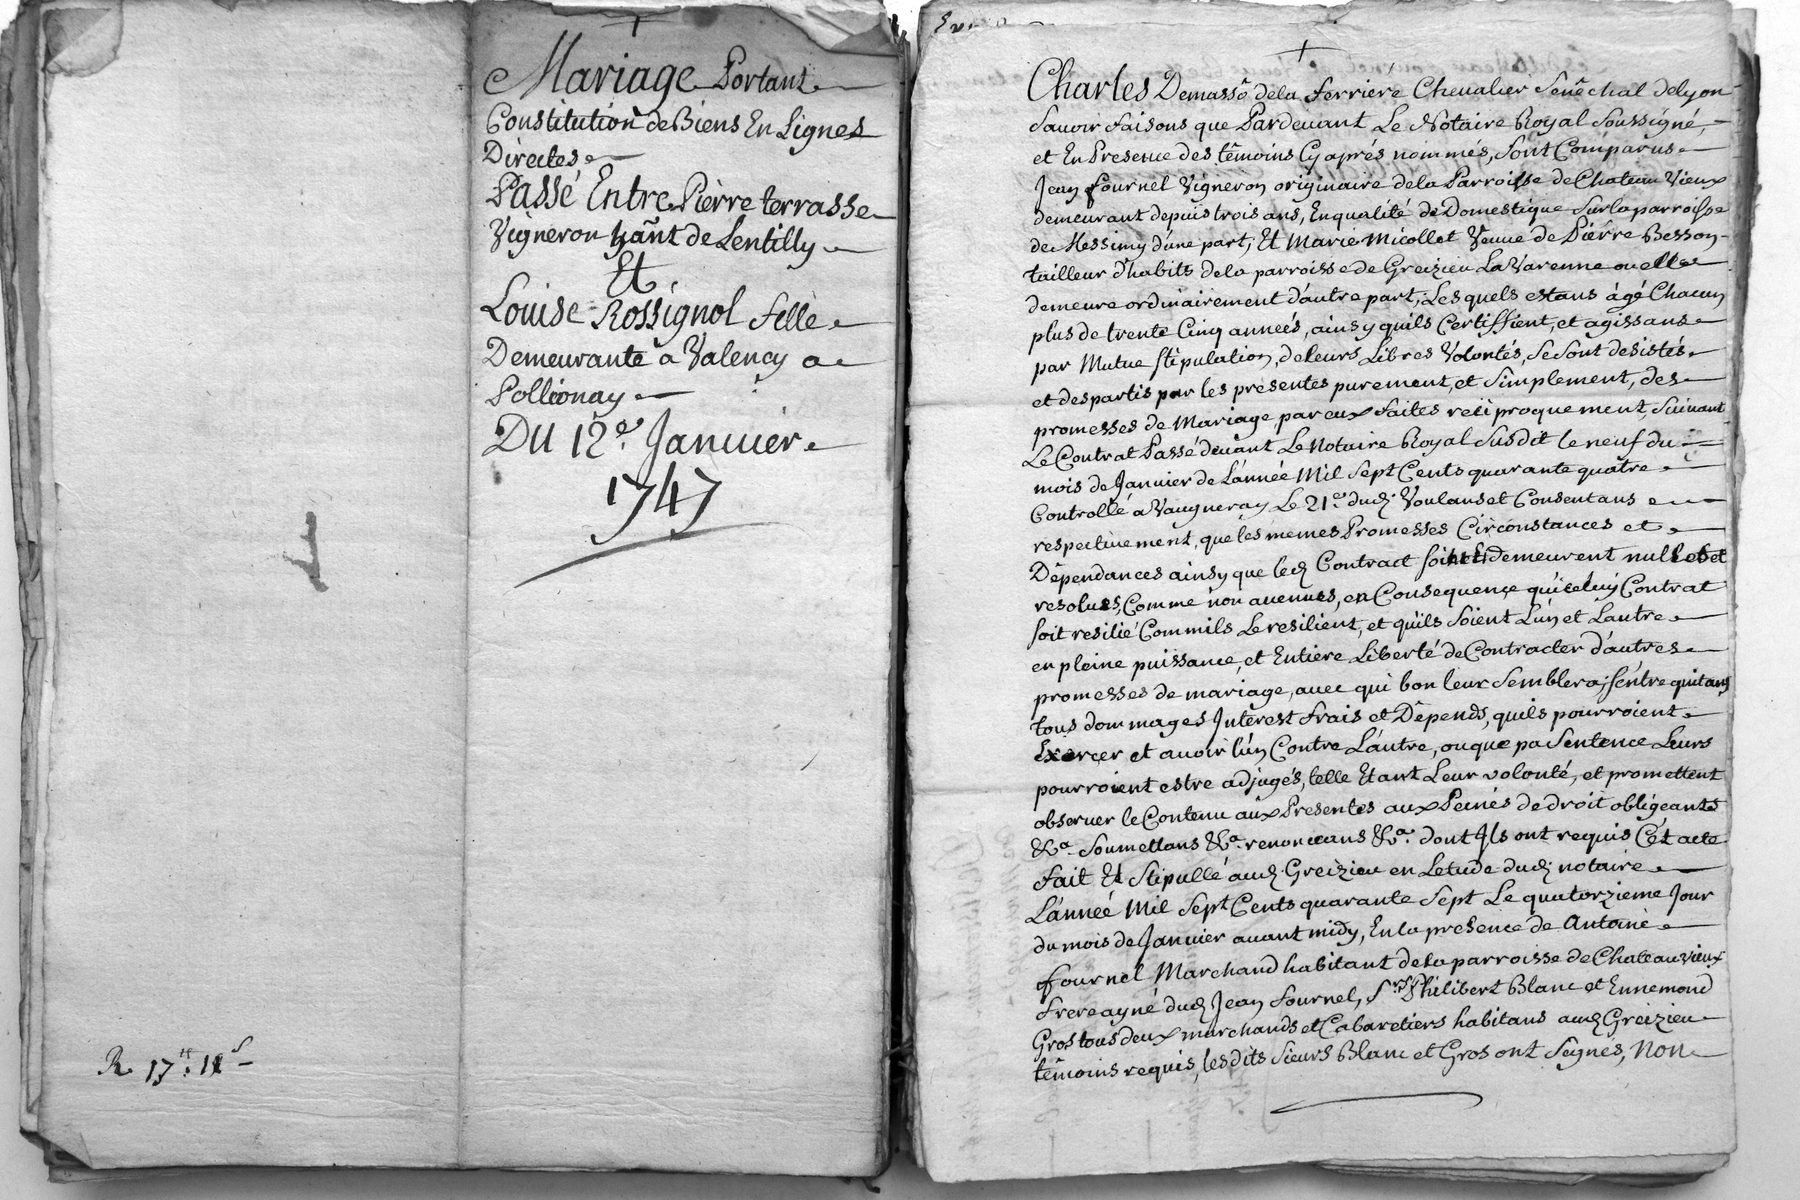 Mariage Portant
Constitution de Biens En Lignes
Directes
Passé Entre Pierre terrasse
Vigneron hãnt de Lentilly
Et
Louise Rossignol fille
Demeurante a Valency a
Pollionay
Du 12e. Janvier
1747
R. 17
Charles Demassõ de la ferriere Chevalier Senéchal de lyon
Savoir faisons que Pardevant Le Notaire Royal Soussigné,
et En Presence des têmoins Cy aprés nommés, Sont Comparus
Jean fournel Vigneron originaire de la Parroisse de Chateau Vieux
demeurant depuis trois ans, En qualité de Domestique Sur la parroisse
de Messimy d'une part; Et Marie Micollet Veuve de Pierre Besson
tailleur d'habits de la parroisse de Greizieu La Varenne ou elle
demeure ordinairement d'autre part; Lesquels estans àgé Chacun
plus de trente Cinq annéés, ainsy quils Certiffient, et agissans
par Mutue stipulation, de leurs Libres Volontés, Se Sont desistés
et despartis par les présentes purement, et Simplement, des
promesses de Mariage, par eux faites reciproquement, Suivant
Le Contrat Passé devant Le Notaire Royal Susdit le neuf du
mois de Janvier de L'année Mil Sept Cents quarante quatre
Controllé a Vaugneray Le 21e. dud. Voulans et Consentans
respectivement, que les mêmes Promesses Circonstances et
Dépendances ainsy que led. Contract soient demeurent nulles et
resolues, Comme non avenues, en Consequence qu'iceluy Contrat
soit resilié Commils Le resilient, et quils Soient L'un et L'autre
en pleine puissance, et Entiére Liberté de Contracter d'autres
promesses de mariage, avec qui bon leur Semblera; s'entre quitans
tous dommages Interest frais et Dêpends, quils pourroient
Exercer et avoir l'un Contre L'autre, ou que pa Sentence Leurs
pourroient estre adjugés, telle Etant Leur volonté, et promettent
observer le Contenu aux Presentes aux Peines de droit obligeants
&a. Soumettans &a. renoncans &a. dont Ils ont requis Cet acte
fait Et Stipullé aud. Greizieu en Letude dud. notaire
L'annéé Mil Sept Cents quarante Sept Le quatorzieme Jour
du mois de Janvier avant midy, En la presence de Antoine
fournel Marchand habitant de la parroisse de Chateauvieux
frere ayné dud. Jean fournel, Srs. Philibert Blanc et Ennemond
Gros tous deux marchands et Cabaretiers habitans aud. Greizieu
têmoins requis, les dits Sieurs Blanc et Gros ont Signes, Non